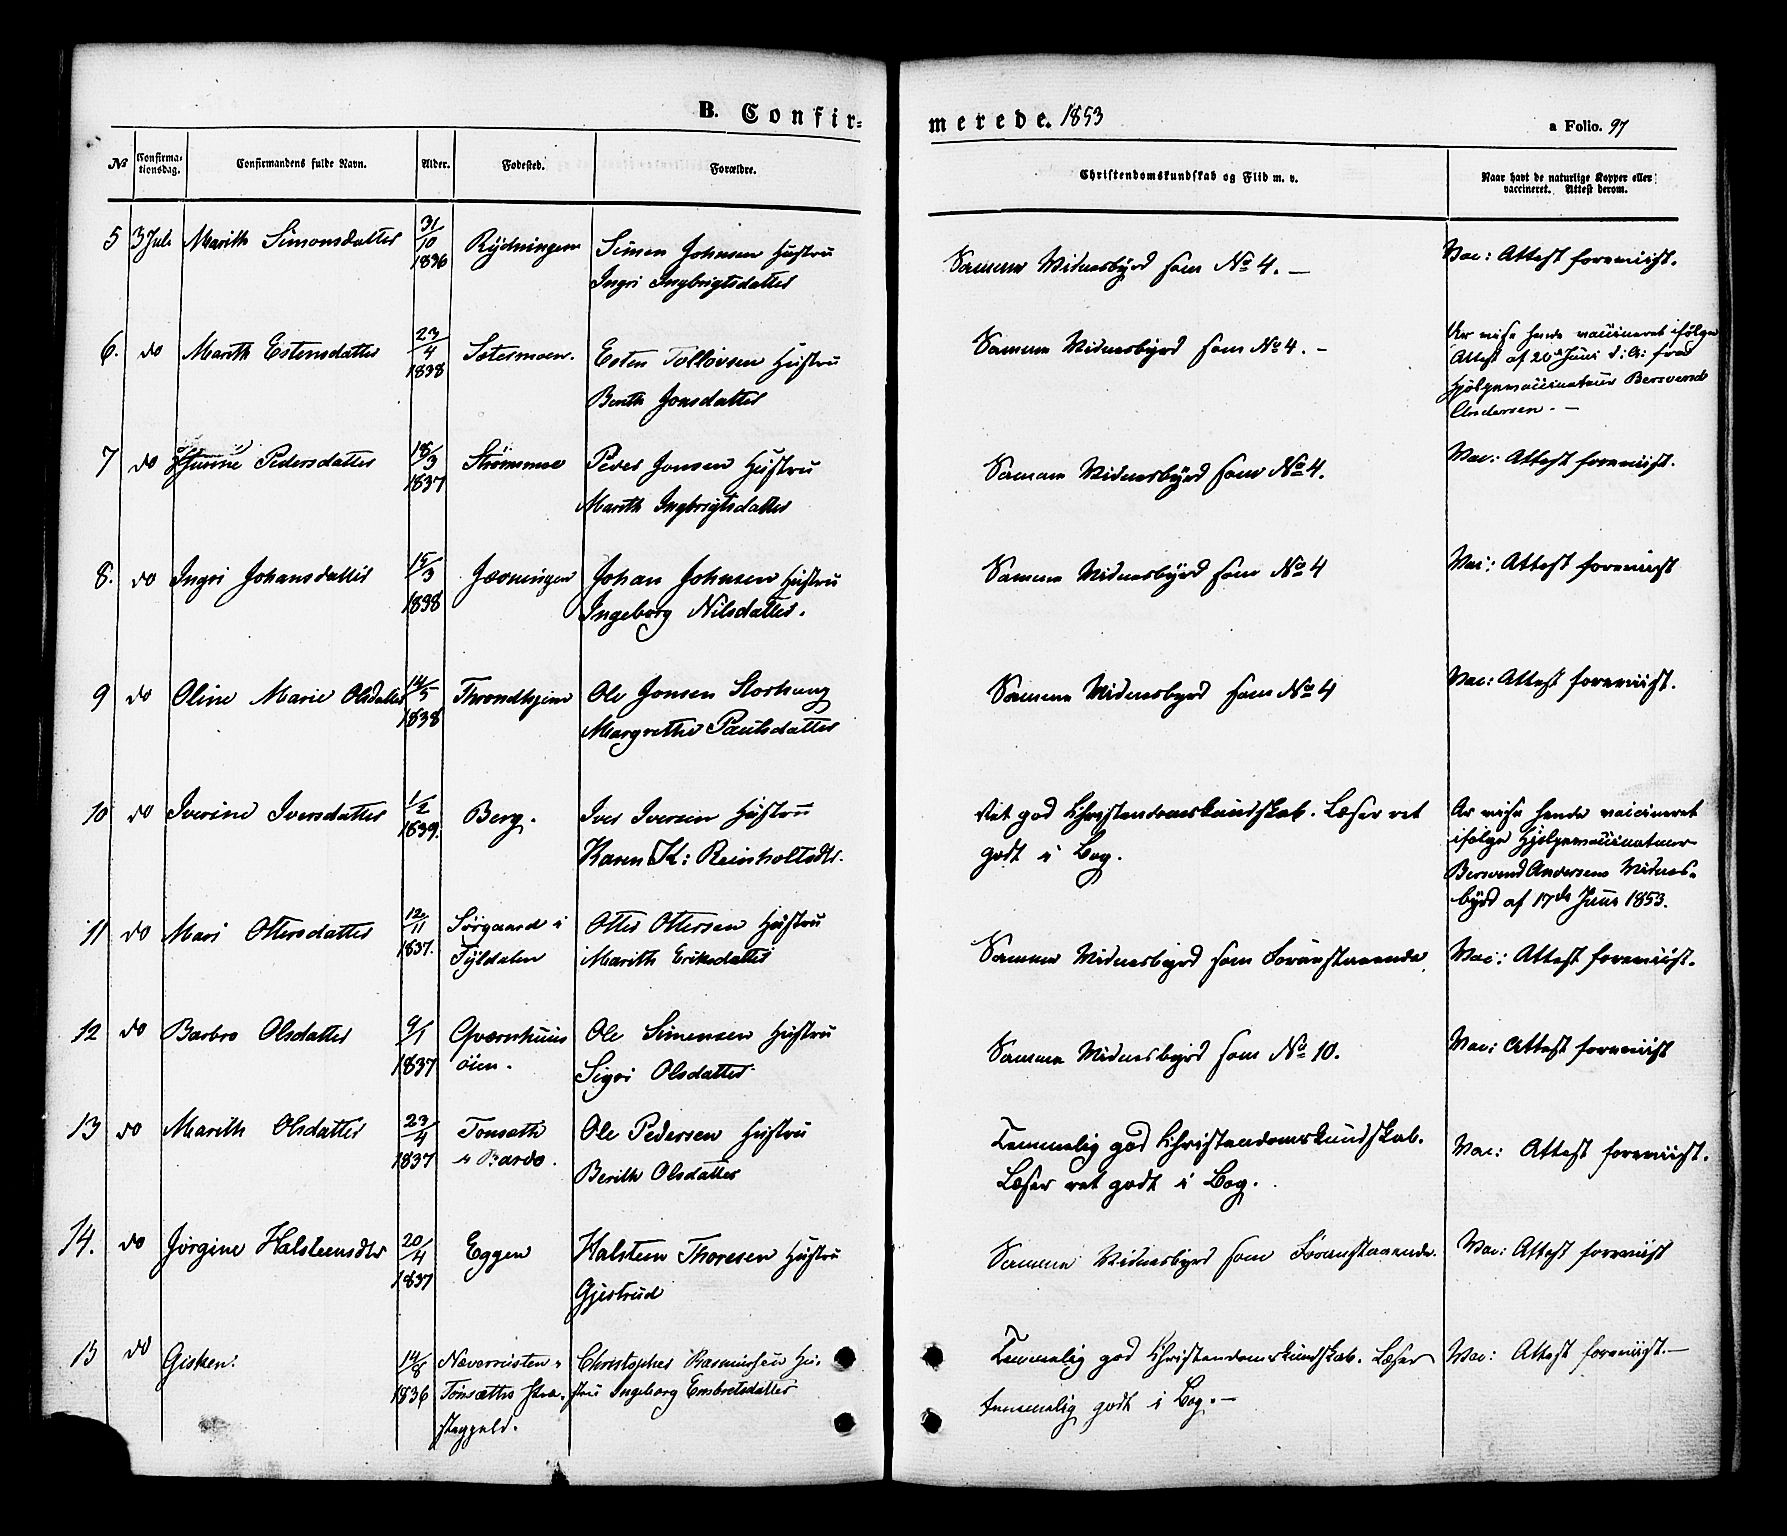 B. Confir-
merede. 1853
a Folio. 97
No
Confirma-
tionsdag.
Confirmandens fulde Navn.
Alder.
Fødested.
Forældre.
Christendomskundskab og Flid m. v.
Naar havt de naturlige Kopper eller
vaccineret. Attest derom.
5 3 Juli Marith Simonsdatter 31/10 1836 Rydningen Simen Johnsen Hustru
Ingri Ingbrigtsdatter
Samme Vidnesbyrd som No 4. –
Vac: Attest foreviist.
6. do Marith Estensdatter 23/4 1838 Sætermoen. Esten Tollovsen Hustru
Berith Jonsdatter
Samme Vidnesbyrd som No 4. –
Attest af 20de Juni d: A: fra
Hjelpevaccinateur Bersvend
Andersen. –
7 do Pedersdatter 18/3 1837 Strømmen Peder Jonsen Hustru
Marith Ingbrigtsdatter
Samme Vidnesbyrd som No 4.
Vac: Attest foreviist.
8. do Ingri Johansdatter 15/3 1838 Jævningen Johan Johnsen Hustru
Ingeborg Nilsdatter.
Samme Vidnesbyrd som No 4
Vac: Attest foreviist
9 do Oline Marie Olsdatter 14/5 1838 Throndhjem Ole Jonsen Storhaug
Margrethe Paulsdatter
Samme Vidnesbyrd som No 4
Vac: Attest foreviist.
10 do Iverine Iversdatter 1/2 1839. Berg. Iver Iversen Hustru
Karen K: Reinholtsdtr.
Ret god Christendomskundskab. Læser ret
godt i Bog.
Er vise hende vaccineret
ifølge Hjelpevaccinateur
Bersvend Andersens Vidnes-
byrd af 17de Juni 1853.
11 do Mari Ottersdatter 12/11 1837. Sørgaard i
Tyldalen
Otter Ottersen Hustru
Marith Eriksdatter
Samme Vidnesbyrd som Foranstaaende
Vac: Attest foreviist.
12 do Barbro Olsdatter 9/1 1837 Qværnhuus
øien.
Ole Simensen Hustru
Sigri Olsdatter
Samme Vidnesbyrd som No 10.
Vac: Attest foreviist
13 do Marith Olsdatter 23/4 1837 Tonsæth
i Bardo.
Ole Pedersen Hustru
Berith Olsdatter
Temmelig god Christendomskundskab.
Læser ret godt i Bog.
Vac: Attest foreviist.
14. do Jørgine Halsteensdtr 20/4 1837 Eggen Halsteen Thoresen Hustru
Gjertrud
Samme Vidnesbyrd som Foranstaaende.
Vac: Attest foreviist
15 do Gisken. 14/8 1836 Næverristen i
Tønsætts Præ-
stegjeld.
Christopher Rasmussen Hu-
stru Ingeborg Embretsdatter
Temmelig god Christendomskundskab. Læser
temmelig godt i Bog. –
Vac: Attest foreviist. –